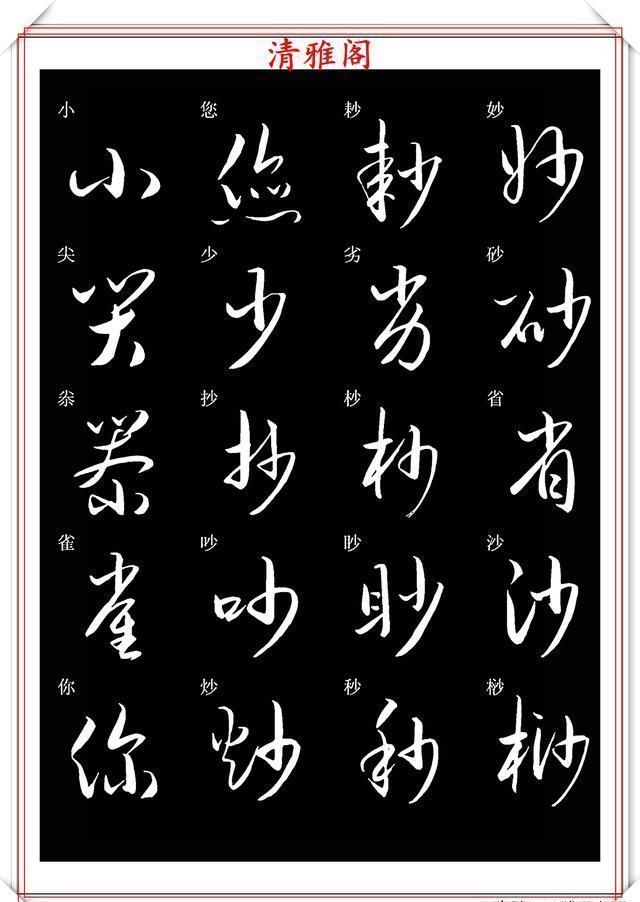 清雅阁
小 您 耖 妙
小 您 耖 妙
尖 少 劣 砂
尖 少 劣 砂
尜 抄 杪 省
尜 抄 杪 省
雀 吵 眇 沙
雀 吵 眇 沙
你 炒 秒 桫
你 炒 秒 桫